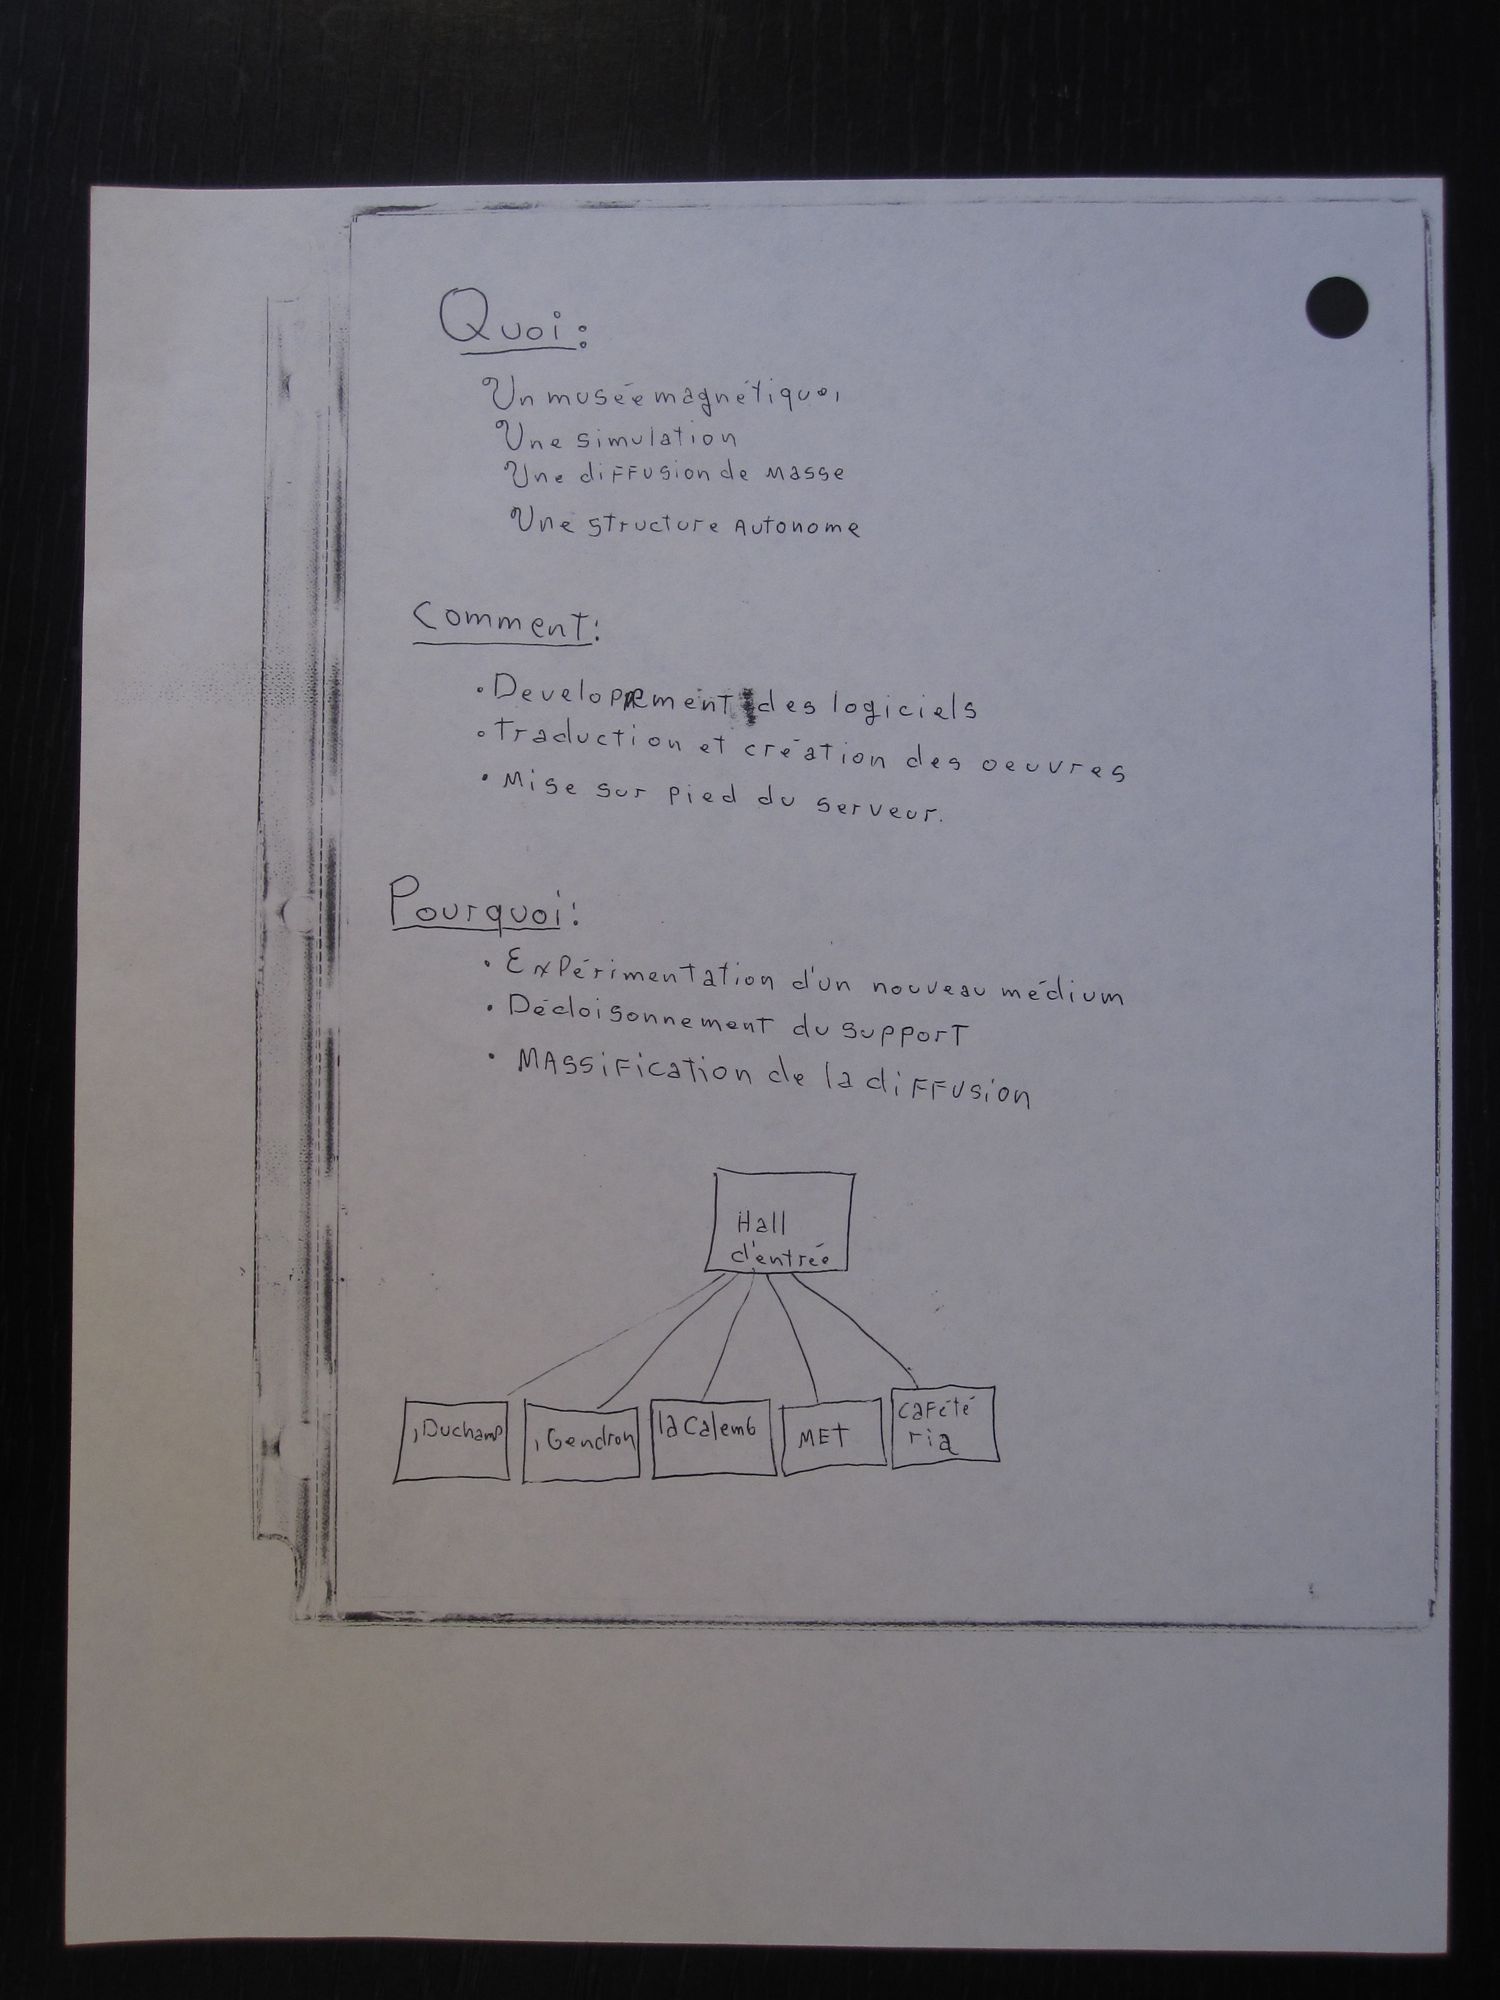 Quoi:
Un musée magnétique,
Une simulation
Une diffusion de masse
Une structure Autonome
Comment:
• Developpement des logiciels
• Traduction et création des oeuvres
• Mise sur pied du serveur.
Pourquoi:
• Expérimentation d'un nouveau médium
• Décloisonnement du support
• MAssification de la diffusion
Hall
d'entrée
, Duchamp
, Gendron
la Calemb
MET
Cafété
ria